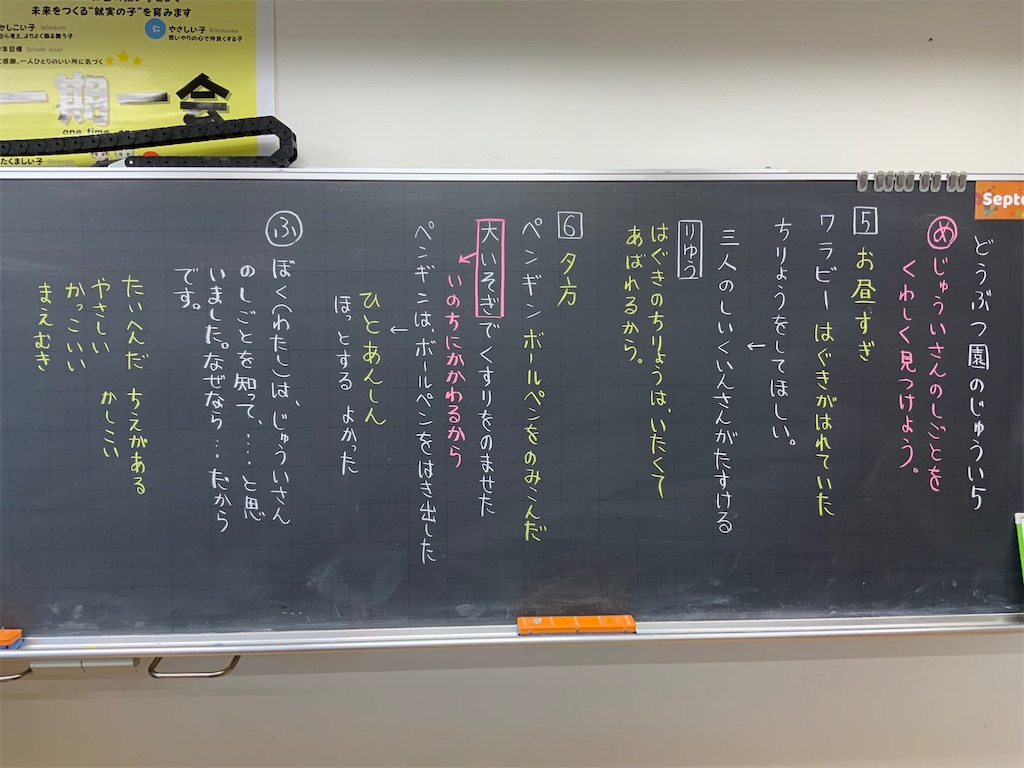 未来をつくる“就実の子”を育みます
かしこい子 Wisdom
自ら考え、よりよく振る舞う子
仁 やさしい子 Kindness
思いやりの心で仲良くする子
年目標 Grade goal
感謝、一人ひとりのいい所に気づく
一期一会
one time
たくましい子 Strength
Septe
どうぶつ園のじゅうい5
め じゅういさんのしごとを
くわしく見つけよう。
5 お昼すぎ
ワラビー はぐきがはれていた
ちりょうをしてほしい。
←
三人のしいくいんさんがたすける
りゆう
はぐきのちりょうは、いたくて
あばれるから。
6 夕方
ペンギン ボールペンをのみこんだ
大いそぎでくすりをのませた
いのちにかかわるから
ペンギンは、ボールペンをはき出した
←
ひとあんしん
ほっとする よかった
ふ ぼく(わたし)は、じゅういさん
のしごとを知って、……と思
いました。なぜなら…だから
です。
たいへんだ ちえがある
やさしい かしこい
かっこいい
まえむき